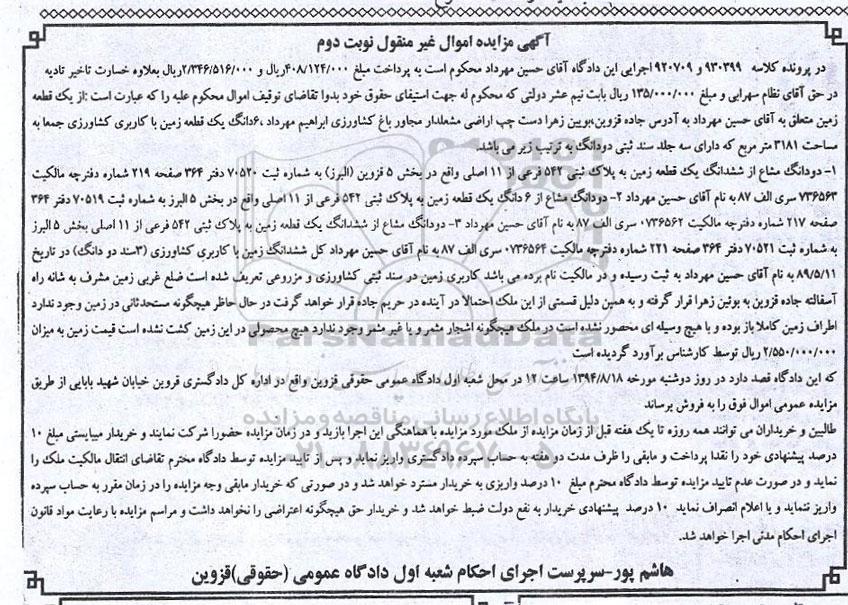 آگهی مزایده اموال غیر منقول نوبت دوم
در پرونده کلاسه ۹۳۰۳۹۹ و ۹۲۰۷۰۹ اجرایی این دادگاه آقای حسین مهرداد محکوم است به پرداخت مبلغ ۴۰۸/۱۲۴/۰۰۰ریال و ۲/۳۴۶/۵۱۶/۰۰۰ریال بعلاوه خسارت تاخیر تادیه
در حق آقای نظام سهرابی و مبلغ ۱۳۵/۰۰۰/۰۰۰ ریال بابت نیم عشر دولتی که محکوم له جهت استیفای حقوق خود بدوا تقاضای توقیف اموال محکوم علیه را که عبارت است :از یک قطعه
زمین متعلق به آقای حسین مهرداد به آدرس جاده قزوین،بویین زهرا دست چپ اراضی مشعلدار مجاور باغ کشاورزی ابراهیم مهرداد ،۶دانگ یک قطعه زمین با کاربری کشاورزی جمعا به
مساحت ۳۱۸۱ متر مربع که دارای سه جلد سند ثبتی دودانگ به ترتیب زیر می باشد.
۱- دودانگ مشاع از ششدانگ یک قطعه زمین به پلاک ثبتی ۵۴۲ فرعی از ۱۱ اصلی واقع در بخش ۵ قزوین (البرز) به شماره ثبت ۷۰۵۲۰ دفتر ۳۶۴ صفحه ۲۱۹ شماره دفترچه مالکیت
۷۳۶۵۶۳ سری الف ۸۷ به نام آقای حسین مهرداد ۲- دودانگ مشاع از ۶ دانگ یک قطعه زمین به پلاک ثبتی ۵۴۲ فرعی از ۱۱ اصلی واقع در بخش ۵ البرز به شماره ثبت ۷۰۵۱۹ دفتر ۳۶۴
صفحه ۲۱۷ شماره دفترچه مالکیت ۰۷۳۶۵۶۲ سری الف ۸۷ به نام آقای حسین مهرداد ۳- دودانگ مشاع از ششدانگ یک قطعه زمین به پلاک ثبتی ۵۴۲ فرعی از ۱۱ اصلی بخش ۵ البرز
به شماره ثبت ۷۰۵۲۱ دفتر ۳۶۴ صفحه ۲۲۱ شماره دفترچه مالکیت ۰۷۳۶۵۶۴ سری الف ۸۷ به نام آقای حسین مهرداد کل ششدانگ زمین با کاربری کشاورزی (۳سند دو دانگ) در تاریخ
۸۹/۵/۱۱ به نام آقای حسین مهرداد به ثبت رسیده و در مالکیت نام برده می باشد کاربری زمین در سند ثبتی کشاورزی و مزروعی تعریف شده است ضلع غربی زمین مشرف به شانه راه
آسفالته جاده قزوین به بوئین زهرا قرار گرفته و به همین دلیل قسمتی از این ملک احتمالا در آینده در حریم جاده قرار خواهد گرفت در حال حاظر هیچگونه مستحدثاتی در زمین وجود ندارد
اطراف زمین کاملا باز بوده و با هیچ وسیله ای محصور نشده است در ملک هیچگونه اشجار مثمر و یا غیر مثمر وجود ندارد هیچ محصولی در این زمین کشت نشده است قیمت زمین به میزان
۲/۵۵۰/۰۰۰/۰۰۰ ریال توسط کارشناس برآورد گردیده است
که این دادگاه قصد دارد در روز دوشنبه مورخه ۱۳۹۴/۸/۱۸ ساعت ۱۲ در محل شعبه اول دادگاه عمومی حقوقی قزوین واقع در اداره کل دادگستری قزوین خیابان شهید بابایی از طریق
مزایده عمومی اموال فوق را به فروش برساند
طالبین و خریداران می توانند همه روزه تا یک هفته قبل از زمان مزایده از ملک مورد مزایده با هماهنگی این اجرا بازدید و در زمان مزایده حضورا شرکت نمایند و خریدار میبایستی مبلغ ۱۰
درصد پیشنهادی خود را نقدا پرداخت و مابقی را ظرف مدت دو هفته به حساب سپرده دادگستری واریز نماید و پس از تایید مزایده توسط دادگاه محترم تقاضای انتقال مالکیت ملک را
نماید و در صورت عدم تایید مزایده توسط دادگاه محترم مبلغ ۱۰ درصد واریزی به خریدار مسترد خواهد شد و در صورتی که خریدار مابقی وجه مزایده را در زمان مقرر به حساب سپرده
واریز ننماید و یا اعلام انصراف نماید ۱۰ درصد پیشنهادی خریدار به نفع دولت ضبط خواهد شد و خریدار حق هیچگونه اعتراضی را نخواهد داشت و مراسم مزایده با رعایت مواد قانون
اجرای احکام مدنی اجرا خواهد شد.
هاشم پور-سرپرست اجرای احکام شعبه اول دادگاه عمومی (حقوقی)قزوین
ParsNamadData
پایگاه اطلاع رسانی مناقصه و مزایده
۰۲۱-۸۸۳۴۹۶۷۰-۵